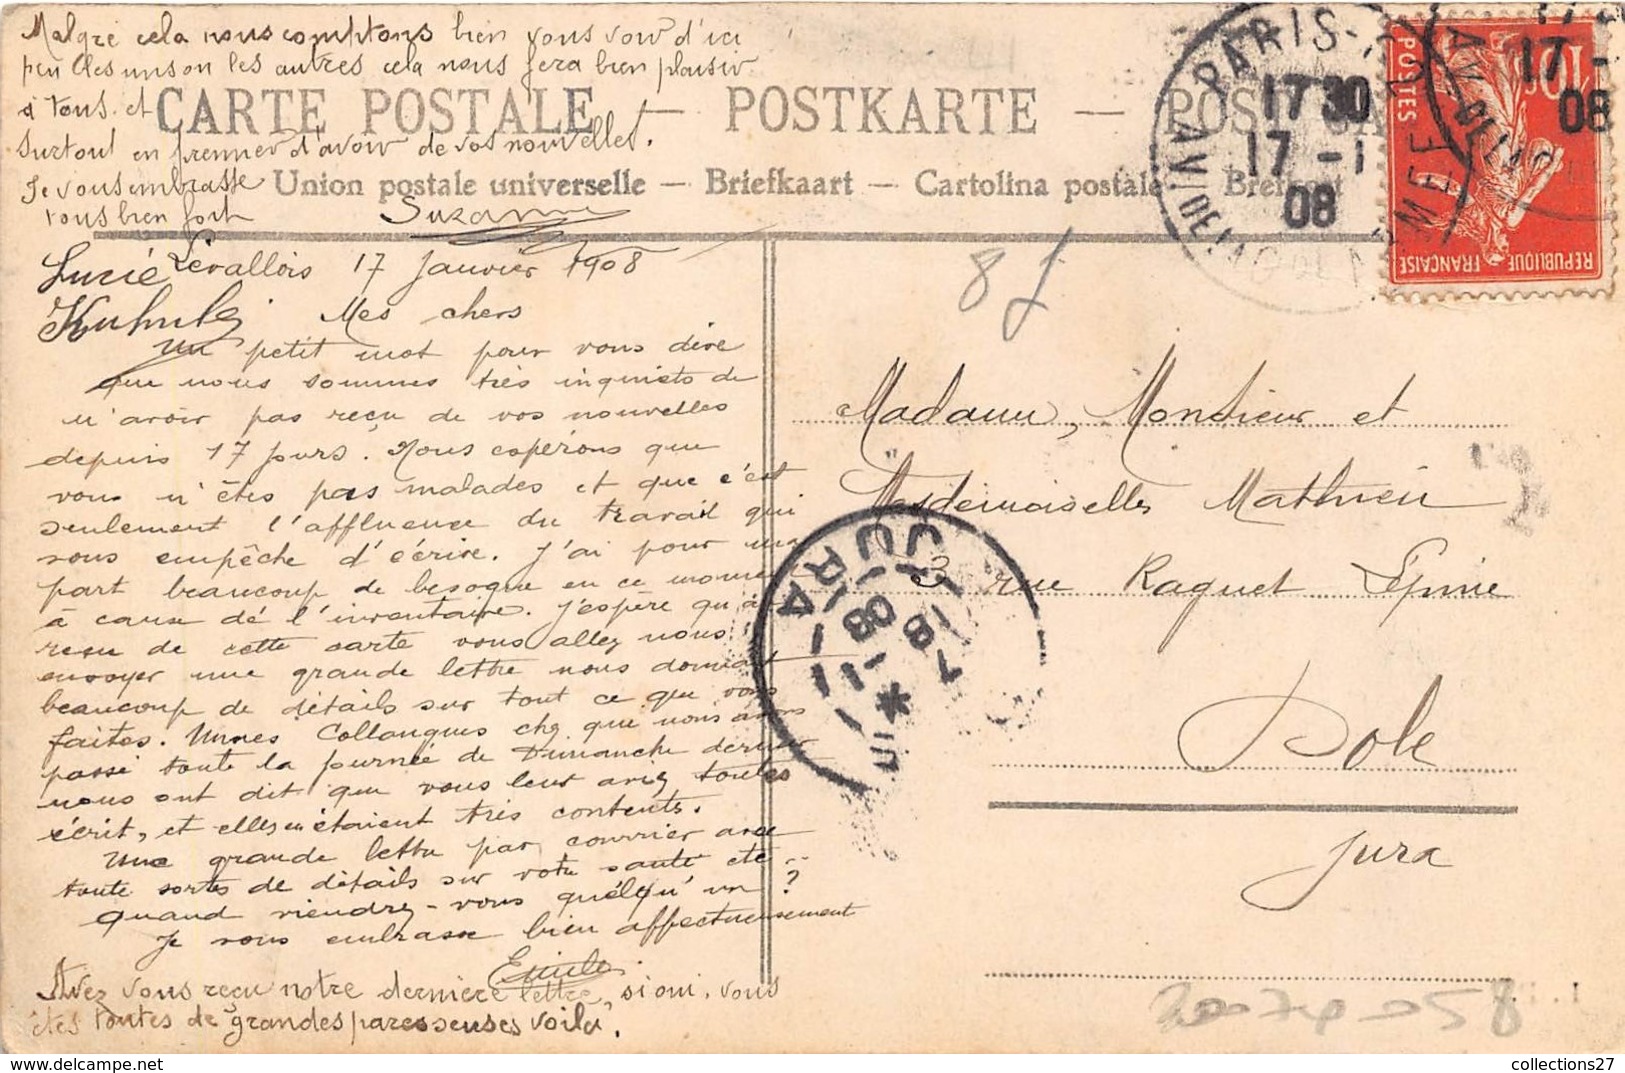 Malgré cela nous comptons bien vous voir d'ici
peu les uns ou les autres cela nous fera bien plaisir
à tous. et
surtout en premier d'avoir de vos nouvelles.
Je vous embrasse
tous bien fort
Suzanne
CARTE POSTALE — POSTKARTE — POST CA
Union postale universelle — Briefkaart — Cartolina postale — Brefkort
PARIS
17 30
17 -1
08
AV. DE LA GDE ARMEE
17 -
08
10c
POSTES
REPUBLIQUE FRANÇAISE
8f
Lucie
Levallois 17 Janvier 1908
Mes chers
Un petit mot pour vous dire
que nous sommes très inquiets de
n'avoir pas reçu de vos nouvelles
depuis 17 jours. Nous espérons que
vous n'êtes pas malades et que c'est
seulement l'affluence du travail qui
vous empêche d'écrire. J'ai pour ma
part beaucoup de besogne en ce moment
à cause de l'inventaire. J'espère qu'au
reçu de cette carte vous allez nous
envoyer une grande lettre nous donnant
beaucoup de détails sur tout ce que vous
faites. Mmes Collangues chez que nous avons
passé toute la journée de Dimanche dernier
nous ont dit que vous leur aviez toutes
écrit, et elles en étaient très contentes.
Une grande lettre par courrier avec
toute sortes de détails sur votre santé etc..
Quand viendrez-vous quélqu'un ?
Je vous embrasse bien affectueusement
Emile
Avez vous reçu notre derniere lettre, si oui, vous
êtes toutes de grandes paresseuses voilà.
Madame, Monsieur et
Mesdemoiselles Mathieu
3 rue Raguet Lépine
Dole
Jura
JURA
7
18 -1
08
collections27